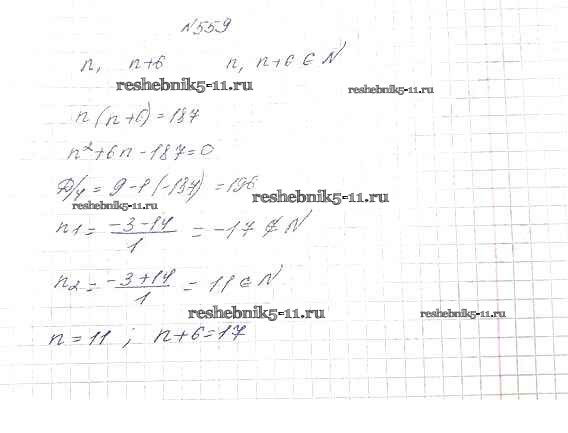 №559
n, n+6 n, n+6 ∈ N
reshebnik5-11.ru reshebnik5-11.ru
n(n+6)=187
n²+6n-187=0
D/4 = 9-1(-187) = 196
reshebnik5-11.ru reshebnik5-11.ru
n1 = (-3-14)/1 = -17 ∉ N
n2 = (-3+14)/1 = 11 ∈ N
reshebnik5-11.ru reshebnik5-11.ru
n=11 ; n+6=17